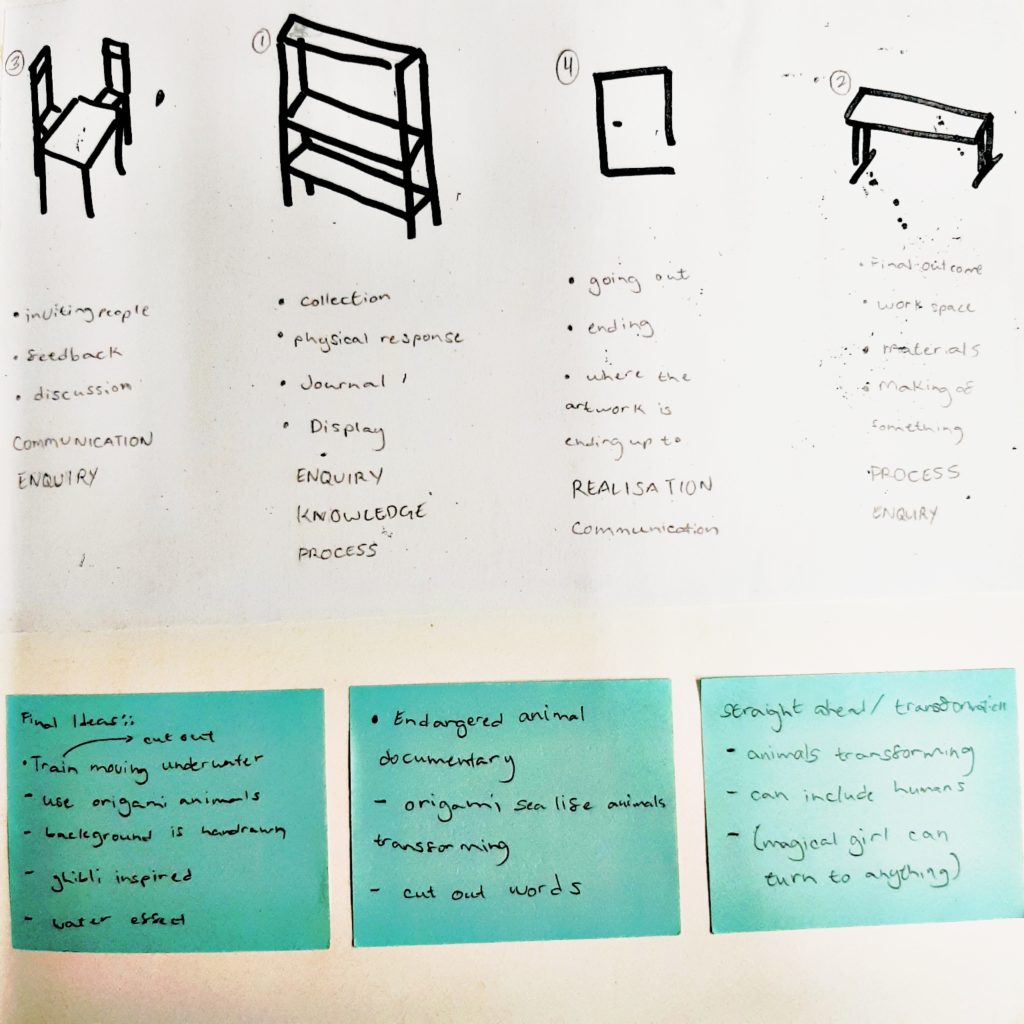 3
• inviting people
• feedback
• discussion
COMMUNICATION
ENQUIRY
1
• collection
• physical response
• Journal
• Display
ENQUIRY
KNOWLEDGE
PROCESS
4
• going out
• ending
• where the
artwork is
ending up to
REALISATION
Communication
2
• Final outcome
• work space
• Materials
• Making of
something
PROCESS
ENQUIRY
Final Ideas::
cut out
• Train moving underwater
- use origami animals
- background is handrawn
- ghibli inspired
- water effect
• Endangered animal
documentary
- origami sea life animals
transforming
- cut out words
straight ahead / transformation
- animals transforming
- can include humans
- (magical girl can
turn to anything)